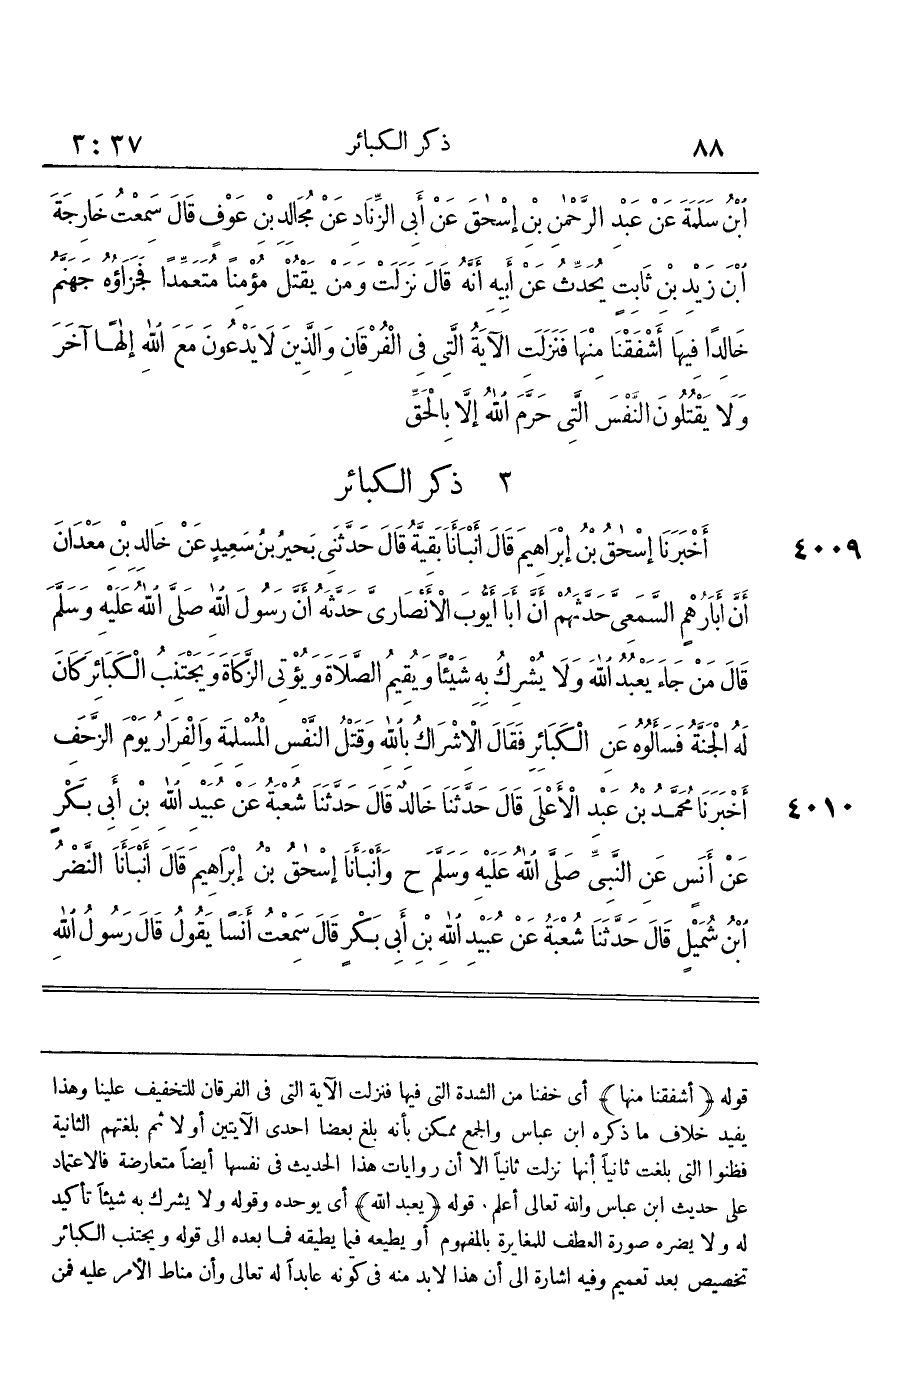 ٨٨ ذكر الكبائر ٣ : ٣٧
ابْنُ سَلَمَةَ عَنْ عَبْدِ الرَّحْمٰنِ بْنِ إِسْحٰقَ عَنْ أَبِى الزِّنَادِ عَنْ مُجَالِدِ بْنِ عَوْفٍ قَالَ سَمِعْتُ خَارِجَةَ
ابْنَ زَيْدِ بْنِ ثَابِتٍ يُحَدِّثُ عَنْ أَبِيهِ أَنَّهُ قَالَ نَزَلَتْ وَمَنْ يَقْتُلْ مُؤْمِنًا مُتَعَمِّدًا فَجَزَاؤُهُ جَهَنَّمُ
خَالِدًا فِيهَا أَشْفَقْنَا مِنْهَا فَنَزَلَتِ الْآيَةُ الَّتِى فِى الْفُرْقَانِ وَالَّذِينَ لَا يَدْعُونَ مَعَ اللهِ إِلٰهًا آخَرَ
وَلَا يَقْتُلُونَ النَّفْسَ الَّتِى حَرَّمَ اللهُ إِلَّا بِالْحَقِّ
٣ ذكر الكبائر
٤٠٠٩ أَخْبَرَنَا إِسْحٰقُ بْنُ إِبْرَاهِيمَ قَالَ أَنْبَأَنَا بَقِيَّةُ قَالَ حَدَّثَنِى بَحِيرُ بْنُ سَعِيدٍ عَنْ خَالِدِ بْنِ مَعْدَانَ
أَنَّ أَبَا رُهْمٍ السَّمَعِىَّ حَدَّثَهُمْ أَنَّ أَبَا أَيُّوبَ الْأَنْصَارِىَّ حَدَّثَهُ أَنَّ رَسُولَ اللهِ صَلَّى اللهُ عَلَيْهِ وَسَلَّمَ
قَالَ مَنْ جَاءَ يَعْبُدُ اللهَ وَلَا يُشْرِكُ بِهِ شَيْئًا وَيُقِيمُ الصَّلَاةَ وَيُؤْتِى الزَّكَاةَ وَيَجْتَنِبُ الْكَبَائِرَ كَانَ
لَهُ الْجَنَّةُ فَسَأَلُوهُ عَنِ الْكَبَائِرِ فَقَالَ الْإِشْرَاكُ بِاللهِ وَقَتْلُ النَّفْسِ الْمُسْلِمَةِ وَالْفِرَارُ يَوْمَ الزَّحْفِ
٤٠١٠ أَخْبَرَنَا مُحَمَّدُ بْنُ عَبْدِ الْأَعْلَى قَالَ حَدَّثَنَا خَالِدٌ قَالَ حَدَّثَنَا شُعْبَةُ عَنْ عُبَيْدِ اللهِ بْنِ أَبِى بَكْرٍ
عَنْ أَنَسٍ عَنِ النَّبِىِّ صَلَّى اللهُ عَلَيْهِ وَسَلَّمَ ح وَأَنْبَأَنَا إِسْحٰقُ بْنُ إِبْرَاهِيمَ قَالَ أَنْبَأَنَا النَّضْرُ
ابْنُ شُمَيْلٍ قَالَ حَدَّثَنَا شُعْبَةُ عَنْ عُبَيْدِ اللهِ بْنِ أَبِى بَكْرٍ قَالَ سَمِعْتُ أَنَسًا يَقُولُ قَالَ رَسُولُ اللهِ
قوله ﴿أشفقنا منها﴾ أى خفنا من الشدة التى فيها فنزلت الآية التى فى الفرقان للتخفيف علينا وهذا
يفيد خلاف ما ذكره ابن عباس والجمع ممكن بأنه بلغ بعضا احدى الآيتين أولا ثم بلغتهم الثانية
فظنوا التى بلغت ثانياً أنها نزلت ثانياً الا أن روايات هذا الحديث فى نفسها أيضاً متعارضة فالاعتماد
على حديث ابن عباس والله تعالى أعلم. قوله ﴿يعبد الله﴾ أى يوحده وقوله ولا يشرك به شيئاً تأكيد
له ولا يضره صورة العطف للمغايرة بالمفهوم أو يطيعه فيما يطيقه فما بعده الى قوله ويجتنب الكبائر
تخصيص بعد تعميم وفيه اشارة الى أن هذا لابد منه فى كونه عابداً له تعالى وأن مناط الأمر عليه فمن